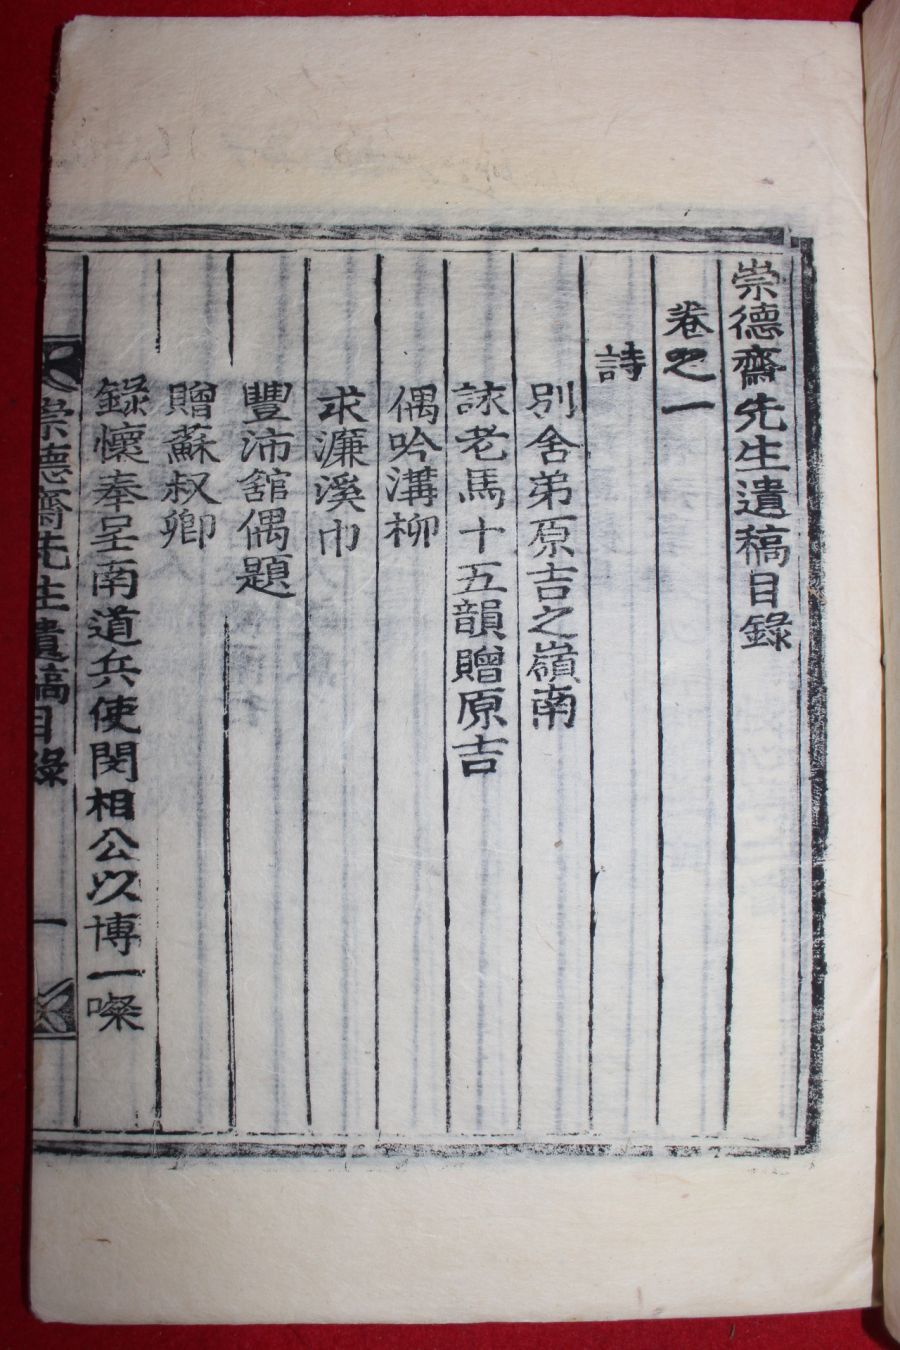 崇德齋先生遺稿目錄
卷之一
詩
別舍弟原吉之嶺南
詠老馬十五韻贈原吉
偶吟溝柳
求濂溪巾
豐沛舘偶題
贈蘇叔卿
錄懷奉呈南道兵使閔相公以博一噱
崇德齋先生遺稿目錄 一